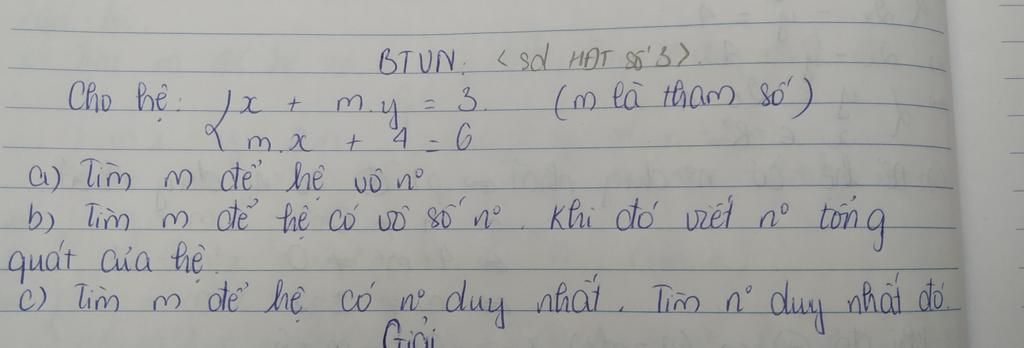 BTVN. <sd HĐT số 3>.
Cho hệ: { x + m.y = 3. (m là tham số)
m.x + 4 = 6
a) Tìm m để hệ vô nº
b) Tìm m để hệ có vô số nº. Khi đó viết nº tổng
quát của hệ.
c) Tìm m để hệ có nº duy nhất. Tìm nº duy nhất đó.
Giải